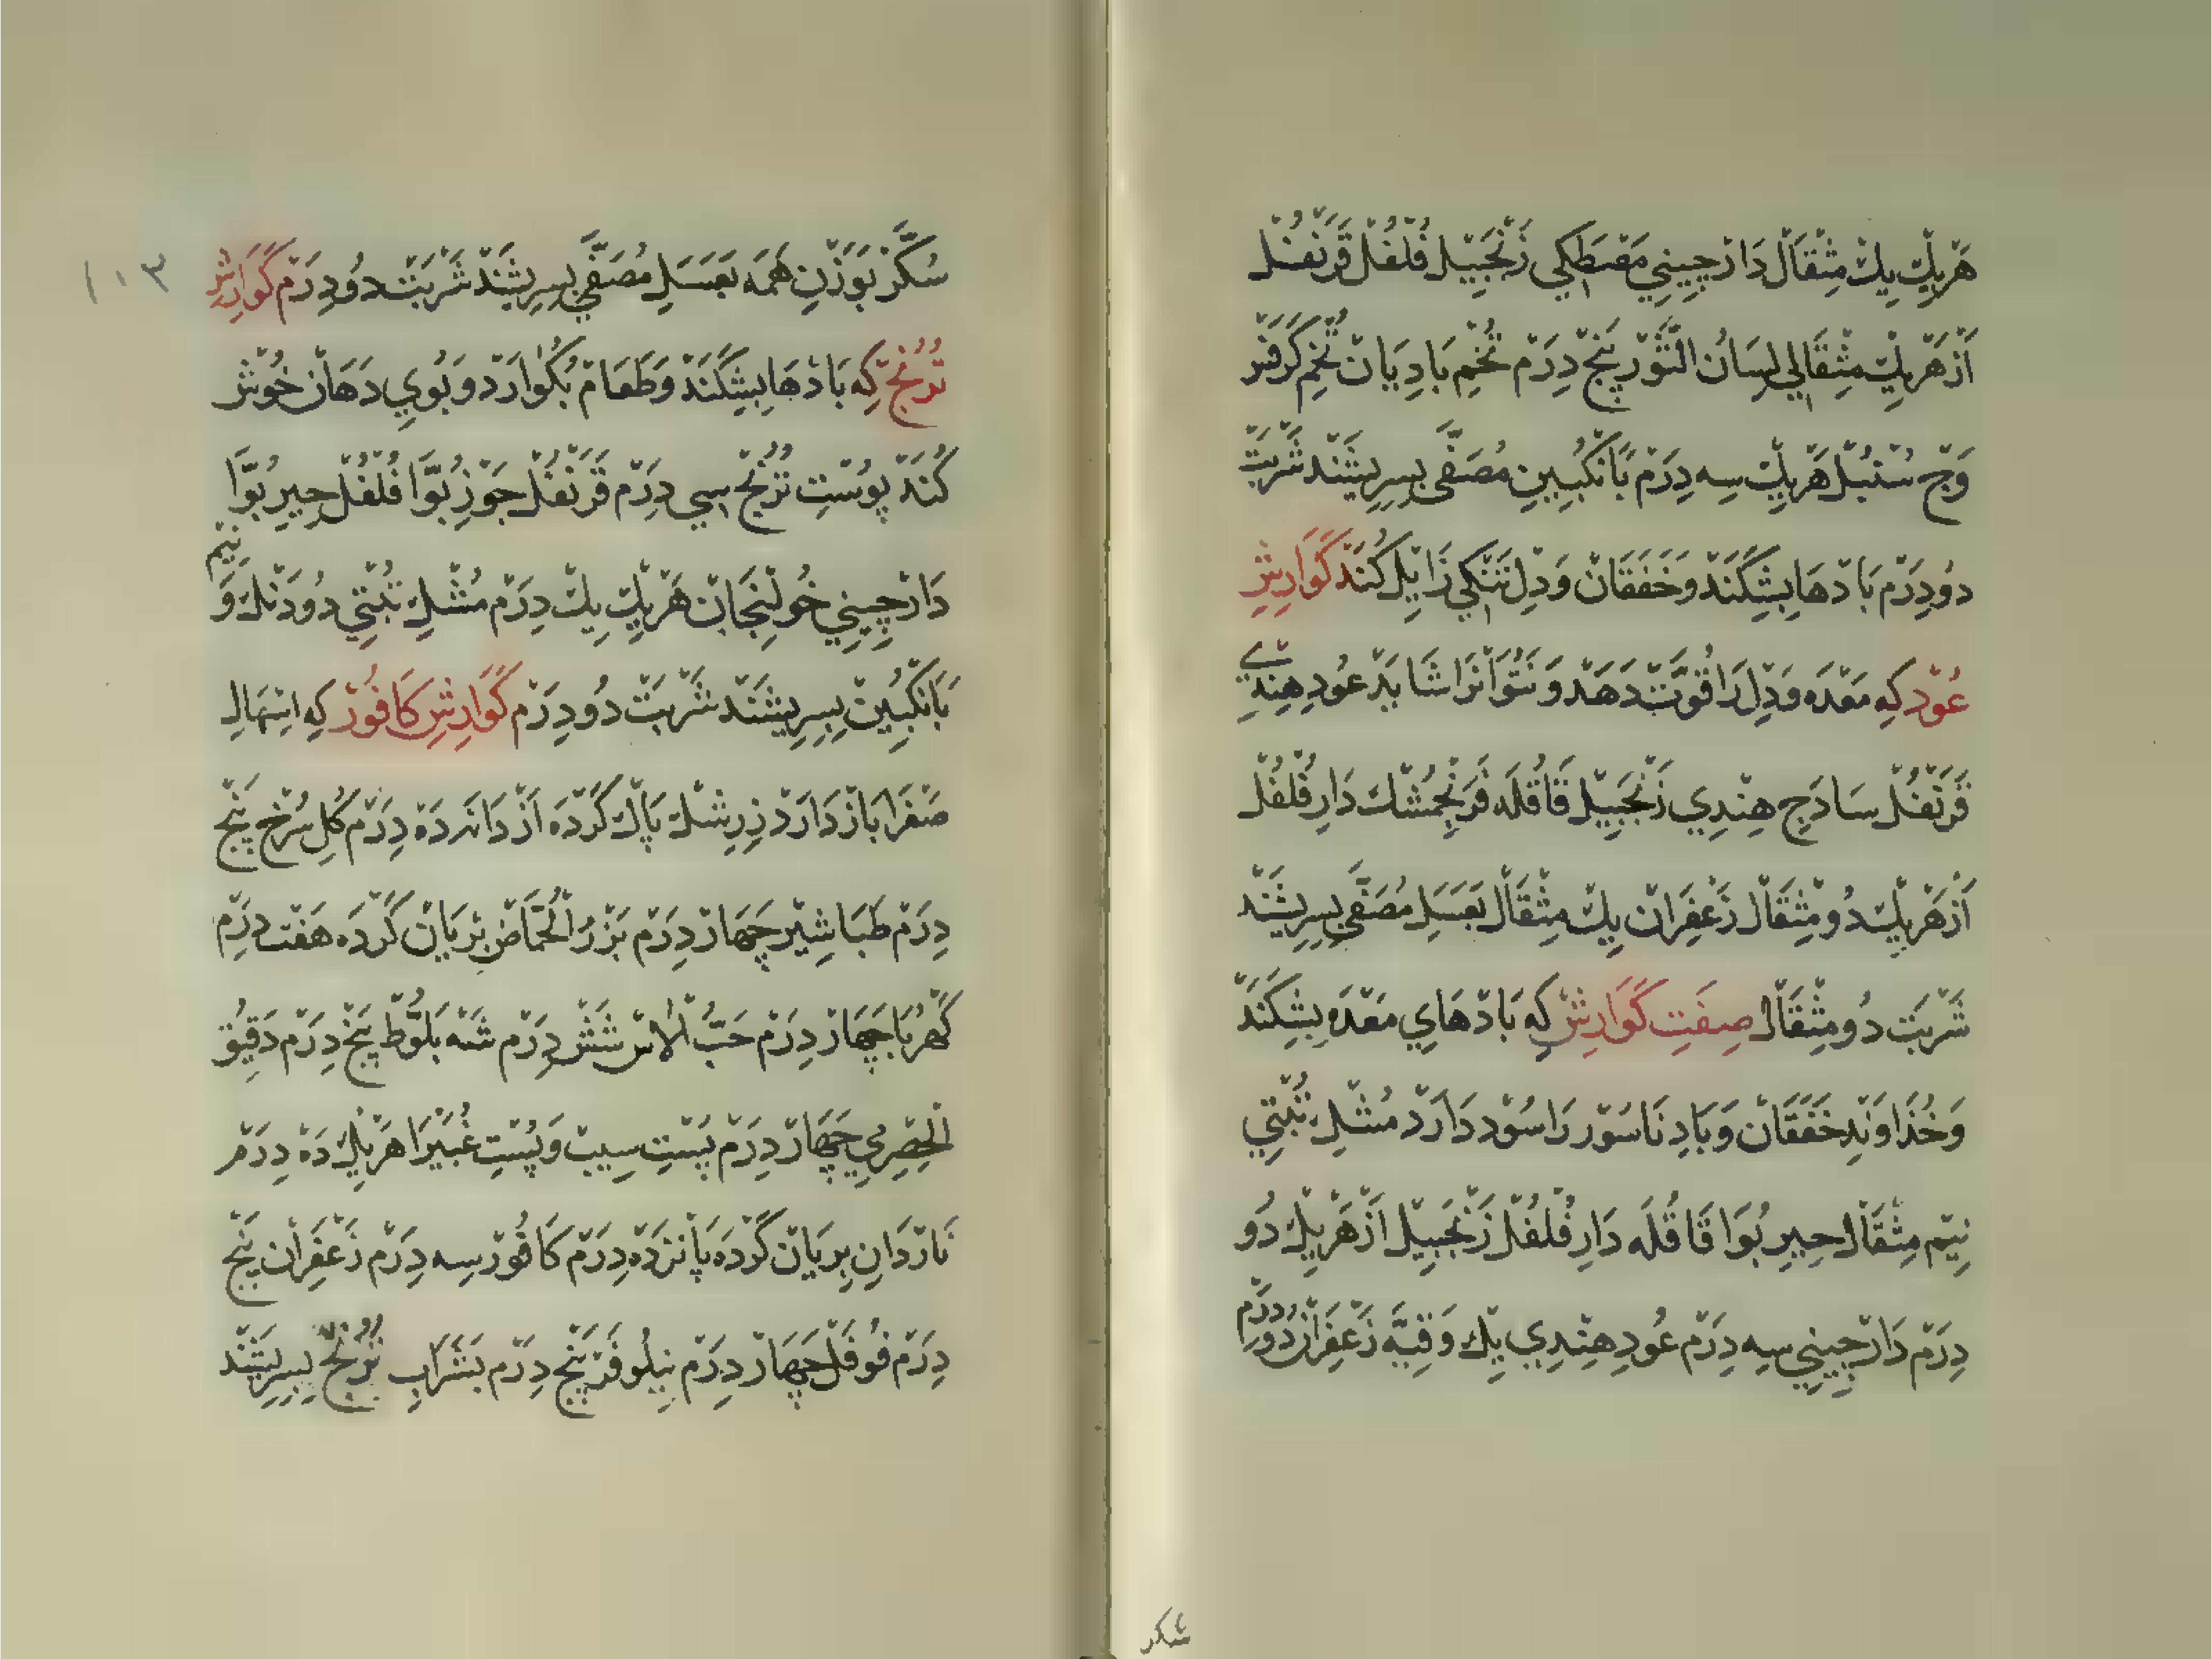 هَریِك یِك مِثْقَالْ دَارْچِینِي مَصْطَكِي زَنْجَبِیلْ فُلْفُلْ قَرَنْفُلْ
اَزْ هَریِك مِثْقَالي لِسَانُ الثَّوْرْ پَنْج دِرَمْ تُخْمِ بَادِیَانْ تُخْمِ كَرَفْسْ
وَجْ سُنْبُلْ هَریِك سِه دِرَمْ بَانْگبِینِ مُصَفَّى بِسِرِیشَنْد شَرْبَتْ
دوُدِرَمْ بَادهَا بِشِكَنَدْ وَخَفَقَانْ وَدِلْ تَنْگي زَایِلْ كُنَدْ گوَارِشِ
عُوْد كِه مَعْدَه وَدِلْ رَا قُوَّتْ دَهَدْ وَنَتُوَانْرَا شَایَدْ عُودِ هِنْدِي
قَرَنْفُلْ سَادَجِ هِنْدِي زَنْجَبِیلْ قَاقُلَه فَرَنْجِمُشْك دَارِ فُلْفُلْ
اَزْ هَریِك دُو مِثْقَالْ زَعْفِرَانْ یِك مِثْقَالْ بَعَسَلِ مُصَفَّي بِسِرِیشَنْد
شَرْبَتْ دو مِثْقَالْ صِفَتِ گوَارِشْ كِه بَادْهَايِ مَعْدَه بِشِكَنَدْ
وَخُذَاوَنْدِ خَفَقَانْ وَبَادِ نَاسُوْر رَا سُوْد دَارَدْ مُشْكِ تُبَّتِي
نِیْم مِثْقَالْ حِیرِ بُوَا قَاقُلَه دَارِ فُلْفُلْ زَنْجَبِیلْ اَزْ هَریِك دُو
دِرَمْ دَارْچِینِي سِه دِرَمْ عُودِ هِنْدِي یِك وَقِیَّه زَعْفِرَانْ دُو دِرَمْ
شكر
۱۰۳
سُكَّرْ بَوَزْنِ هَمَه بَعَسَلِ مُصَفَّي بِسِرِیشَنْد شَرْبَتْ دوُدِرَمْ گوَارِشِ
تُرُنْجْ كِه بَادْهَا بِشِكَنَدْ وَطَعَامْ بُگوَارَدْ وَبُويِ دَهَانْ خُوْشْ
كُنَدْ پُوسْتِ تُرُنْجْ سِي دِرَمْ قَرَنْفُلْ جَوْزِ بُوَّا فُلْفُلْ حِیرِ بُوَّا
دَارْچِینِي خُولِنْجَانْ هَریِك یِك دِرَمْ مُشْكِ تُبَّتِي دُو دَنْك وَنیم
بَانْگبِینْ بِسِرِیشَنَدْ شَرْبَتْ دُودِرَمْ گوَارِشِ كَافُوْرْ كِه اسْهَالِ
صَفْرَا بَازْ دَارَدْ زِرِشْك پَاك كَرْدَه اَزْ دَانَه دَهْ دِرَمْ گلِ سُرْخْ پَنْجْ
دِرَمْ طَبَاشِیْر چَهَارْ دِرَمْ بَزْرُ الْحُمَّاضْ بِرْیَانْ كَرْدَه هَفْتْ دِرَمْ
كَهْرُبَا چَهَارْ دِرَمْ حَبُّ الْاسْ شَشْ دِرَمْ شَنَه بَلُّوْط پَنْجْ دِرَمْ دَقِیْق
الْحِصْرِمِي چَهَارْ دِرَمْ پُسْتِ سِیبْ وَپُسْتِ غُبَیْرَا هَریِك دَهْ دِرَمْ
نَارْدَانِ بِرِیَانْ كَرْدَه پَانْزَدَهْ دِرَمْ كَافُوْرْ سِه دِرَمْ زَعْفِرَانْ پَنْجْ
دِرَمْ فُوْفَلْ چَهَارْ دِرَمْ نِیلُوفَرْ پَنْجْ دِرَمْ بَشَرَابِ تُرُنْجْ بِسِرِیشَنْد